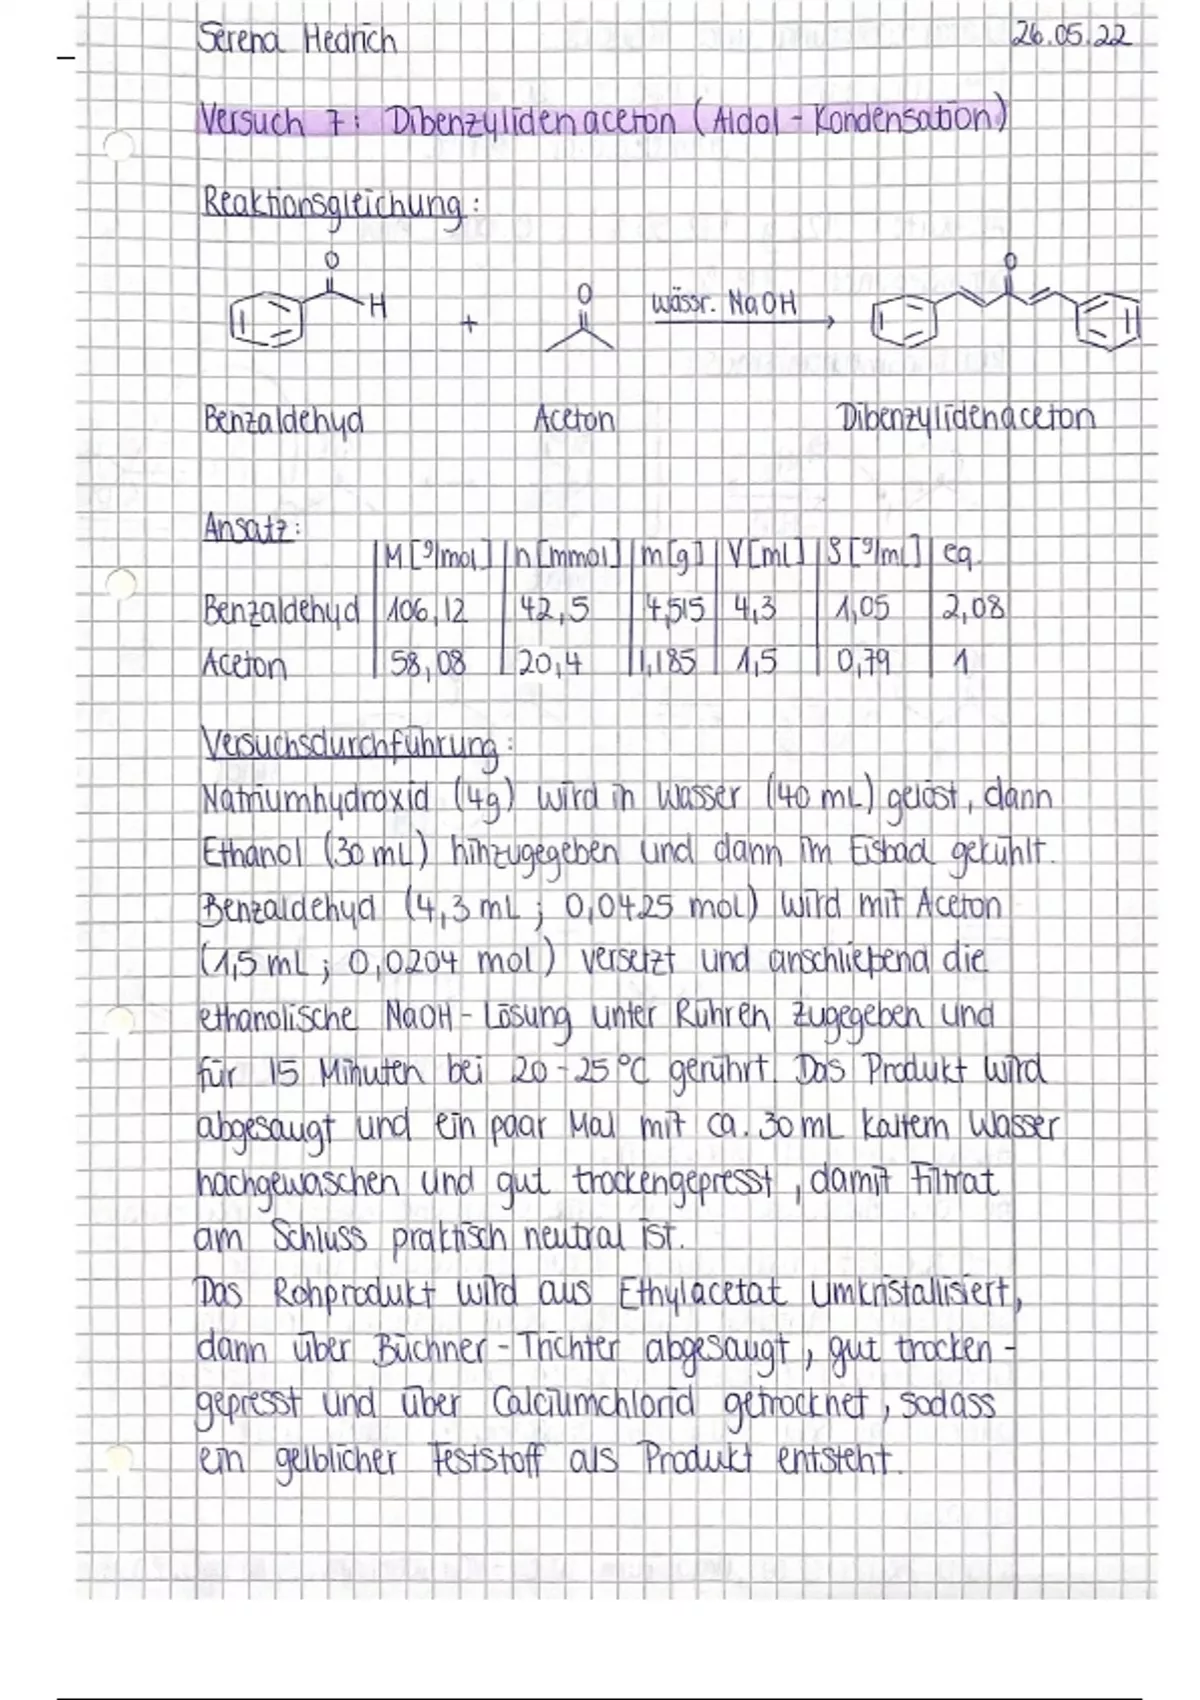 Serena Hedrich 26.05.22
Versuch 7: Dibenzylidenaceton (Aldol-Kondensation)
Reaktionsgleichung:
O
H
+
O
wässr. NaOH
O
Benzaldehyd Aceton Dibenzylidenaceton
Ansatz:
M [g/mol] n [mmol] m [g] V [mL] ρ [g/mL] eq.
Benzaldehyd 106,12 42,5 4,515 4,3 1,05 2,08
Aceton 58,08 20,4 1,185 1,5 0,79 1
Versuchsdurchführung:
Natriumhydroxid (4g) wird in Wasser (40 mL) gelöst, dann
Ethanol (30 mL) hinzugegeben und dann im Eisbad gekühlt.
Benzaldehyd (4,3 mL ; 0,0425 mol) wird mit Aceton
(1,5 mL ; 0,0204 mol) versetzt und anschließend die
ethanolische NaOH-Lösung unter Rühren zugegeben und
für 15 Minuten bei 20-25°C gerührt. Das Produkt wird
abgesaugt und ein paar Mal mit ca. 30 mL kaltem Wasser
nachgewaschen und gut trockengepresst, damit Filtrat
am Schluss praktisch neutral ist.
Das Rohprodukt wird aus Ethylacetat umkristallisiert,
dann über Büchner-Trichter abgesaugt, gut trocken-
gepresst und über Calciumchlorid getrocknet, sodass
ein gelblicher Feststoff als Produkt entsteht.